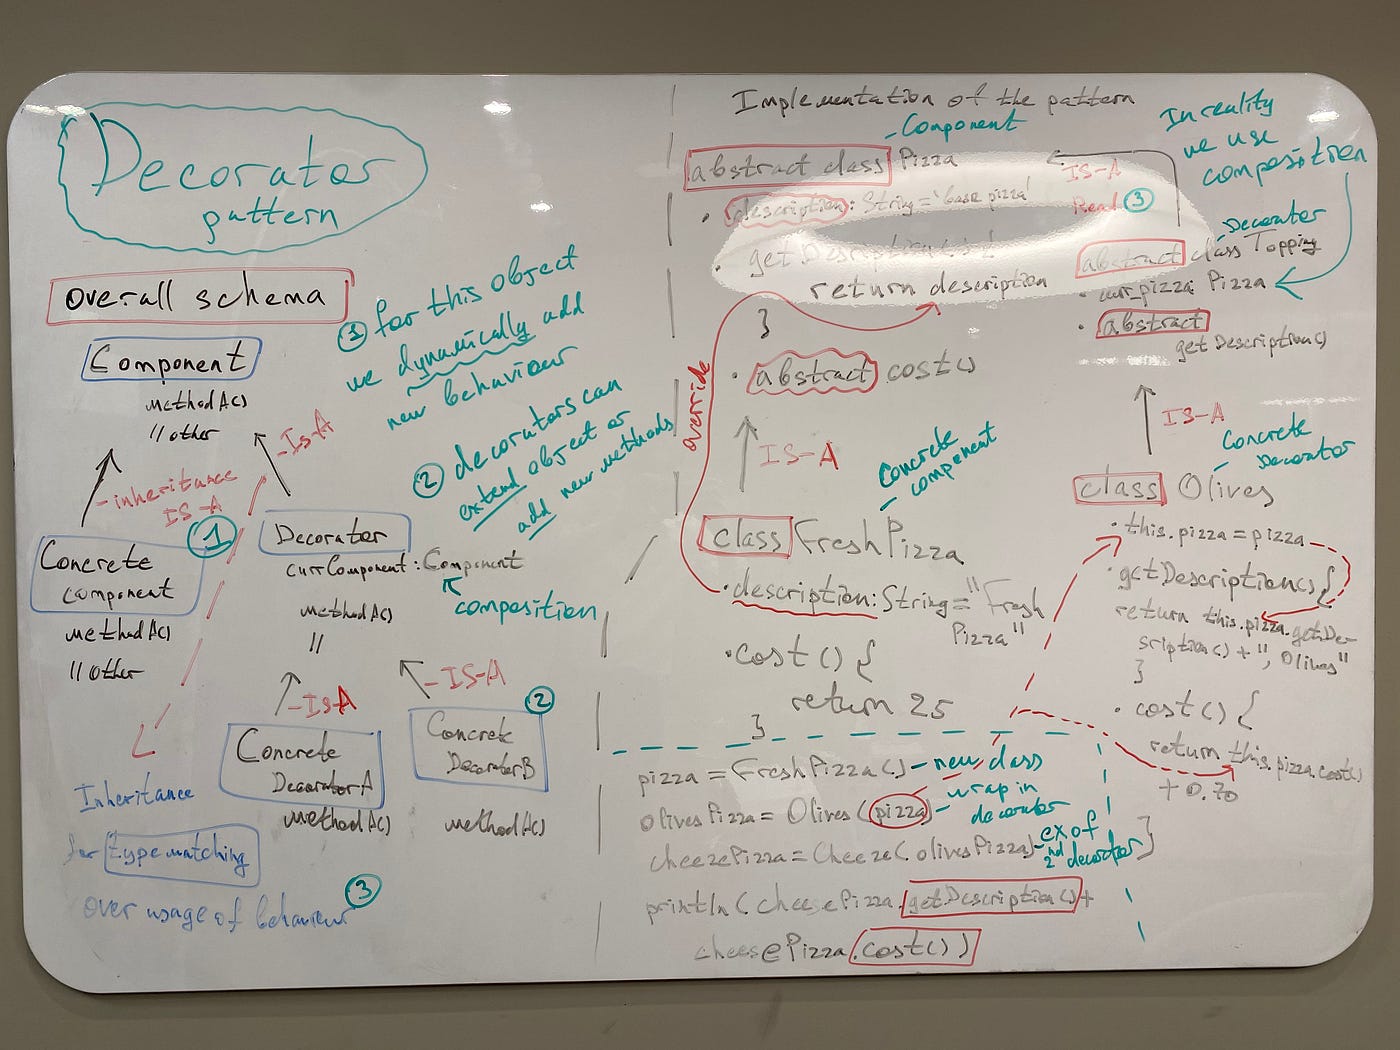 Decorator
pattern
overall schema
Component
methodA()
// other
- inheritance
IS-A
- Is-A
1
Concrete
component
methodA()
// other
Decorator
currComponent : Component
composition
methodA()
//
- Is-A
- IS-A
2
Concrete
DecoratorA
methodA()
Concrete
DecoratorB
methodA()
Inheritance
for type matching
over usage of behaviour
3
1 for this object
we dynamically add
new behaviour
2 decorators can
extend object or
add new methods
Implementation of the pattern
- Component
abstract class Pizza
• description: String = 'base pizza'
• getDescription() {
return description
}
• abstract cost()
override
IS-A
Concrete
- component
class FreshPizza
• description: String = "Fresh
Pizza"
• cost() {
return 25
}
In reality
we use
composition
IS-A
Read 3
- Decorater
abstract class Topping
• curr_pizza: Pizza
• abstract
getDescription()
IS-A
- Concrete
Decorator
class Olives
• this.pizza = pizza
• getDescription() {
return this.pizza.getDe-
scription() + ", Olives"
}
• cost() {
return this.pizza.cost()
+ 0.70
}
pizza = FreshPizza() - new class
olivesPizza = Olives (pizza) - wrap in
decorater
cheezePizza = Cheeze( olivesPizza) - ex of
2nd decorator
println( cheesePizza.getDescription() +
cheesePizza.cost())